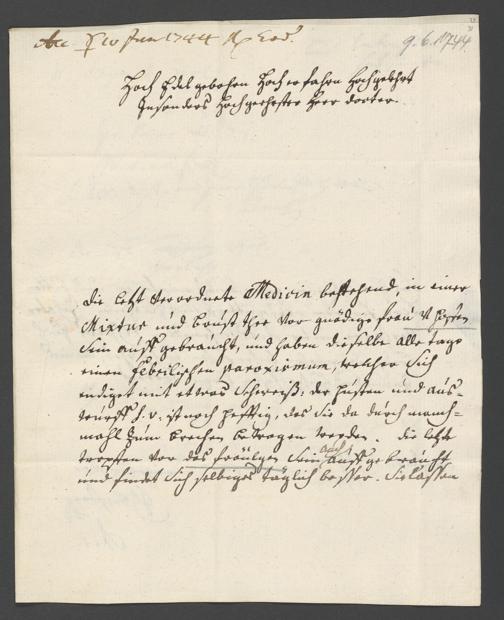 Acc. 10 Jun 1744 Rp Eod.
9.6.1744.
Hoch Edelgebohrn Hocherfahrn Hochgelehrt
Insonders Hochgeehrtester Herr doctor.
die letzt verordnete Medicin bestehend, in einer
Mixtur und Brust thee vor gnädige frau V
sein auß gebraucht, und haben dieselbe alle tage
einen Febrilischen paroxismum, welcher sich
endiget mit etwas Schweiß: der Husten und aus-
wurff s. v. ist noch hefftig, das Sie da durch manch-
mahl zum brechen bewogen werden. die letzte
tropffen vor das fräulgen sein auch auß gebraucht
und findet sich selbiges täglich besser. Sie lassen